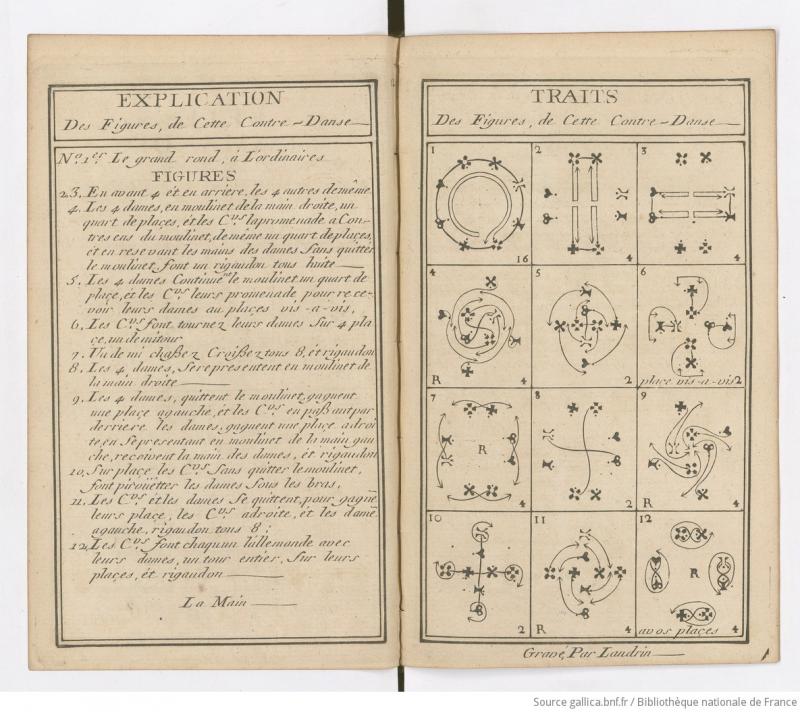 EXPLICATION
Des Figures, de Cette Contre-Danse
N.º 1.er Le grand rond, à L'ordinaires
FIGURES
2.3. En avant 4 et en arriere, les 4 autres de même
4. Les 4 dames, en moulinet de la main droite, un
quart de places, et les C.rs la promenade a Con-
tre sens du moulinet, de même un quart de places,
et en resevant les mains des dames sans quitter
le moulinet font un rigaudon tous huite
5. Les 4 dames Continuent le moulinet un quart de
place, et les C.rs leurs promenade pour rece-
voir leurs dames au places vis-a-vis,
6. Les C.rs font tournez leurs dames Sur 4 pla
ce, un demi tour
7. Un demi chaßez Croißez tous 8, et rigaudon
8. Les 4 dames, se representent en moulinet de
la main droite
9. Les 4 dames, quittent le moulinet, gagnent
une place agauche, et les C.rs en paßant par
derriere les dames, gagnent une place a droi
te, en se presentant en moulinet de la main gau
che, reçoivent la main des dames, et rigaudon
10. Sur place les C.rs Sans quitter le moulinet,
font piroüetter les dames Sous les bras,
11. Les C.rs et les dames se quittent, pour gagné
leurs place, les C.rs adroite, et les dame
agauche, rigaudon tous 8;
12. Les C.rs font chaqu'un l'allemande avec
leurs dames, un tour entier, Sur leurs
places, et rigaudon
La Main
TRAITS
Des Figures, de Cette Contre-Danse
1 16
2 4
3 4
4 R 4
5 2
6 place vis-a-vis 2
7 R 4
8 2
9 R 4
10 2
11 R 4
12 R avos places 4
Gravé, Par Landrin
Source gallica.bnf.fr / Bibliothèque nationale de France